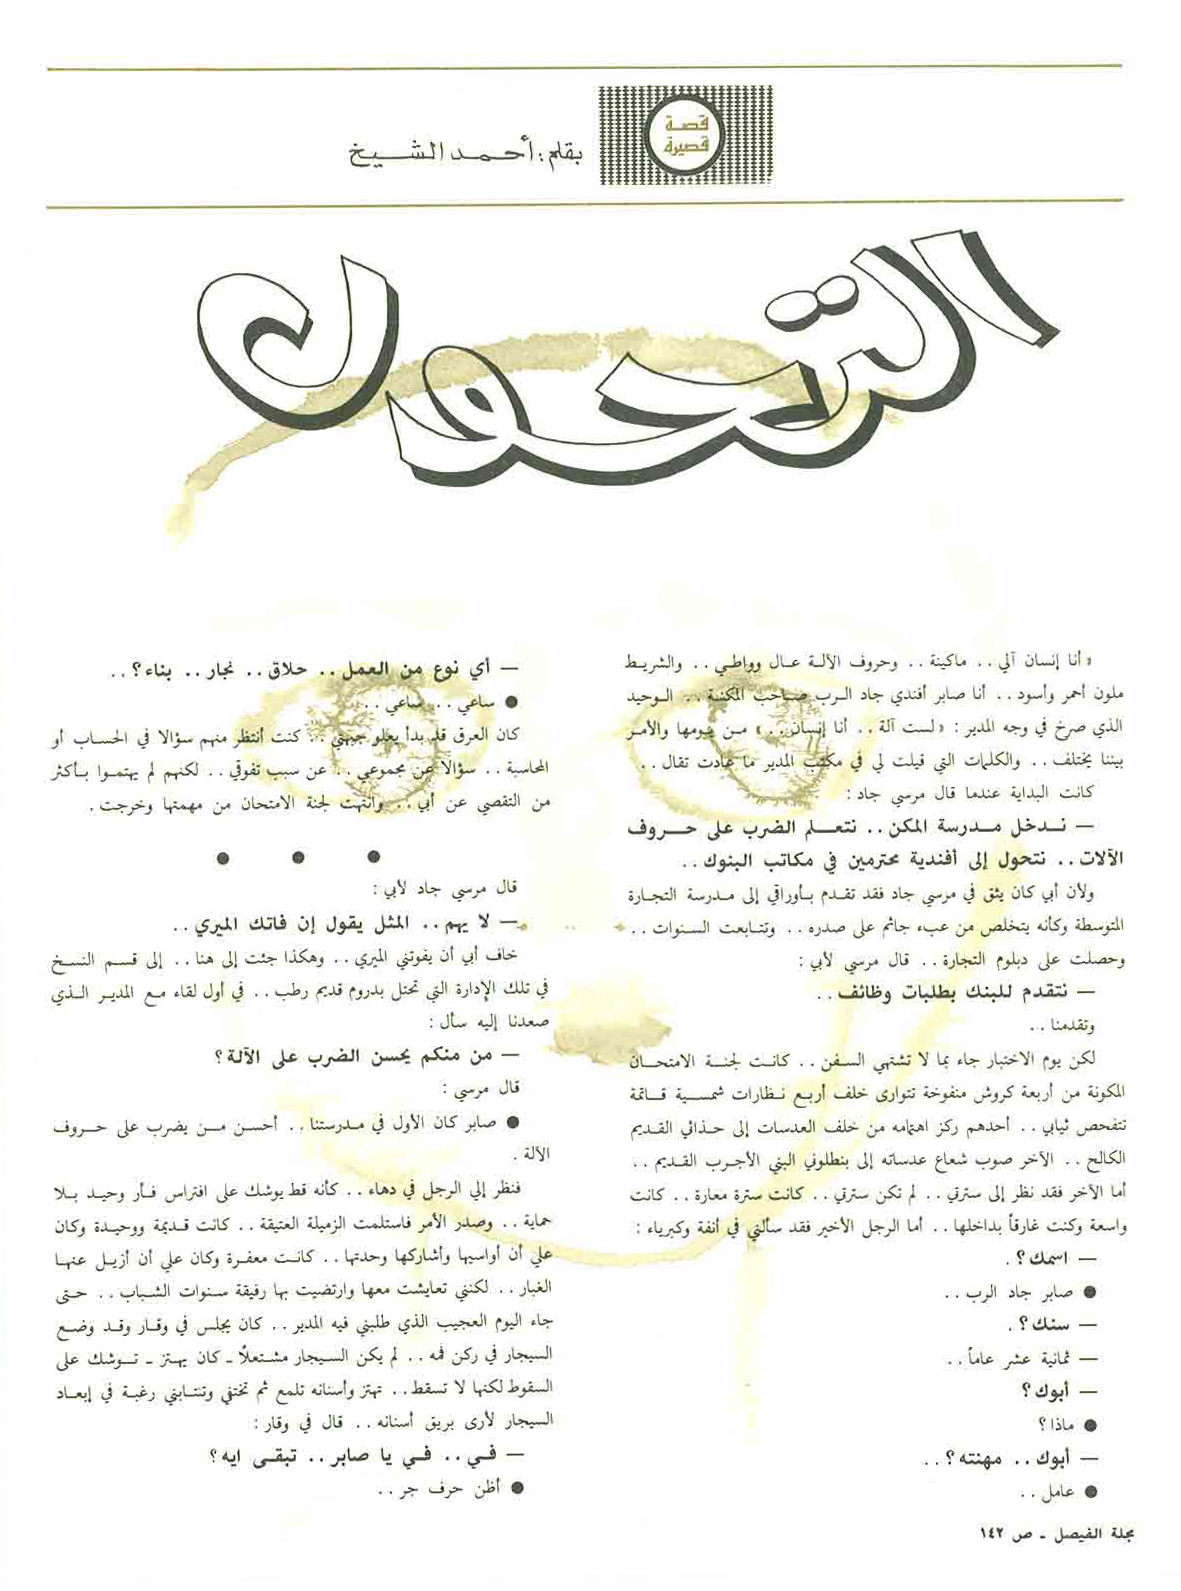 قصة
قصيرة
بقلم : أحمد الشيخ
التحول
« أنا إنسان آلي . . ماكينة . . وحروف الآلة عال وواطي . . والشريط
ملون أحمر وأسود . . أنا صابر أفندي جاد الرب صاحب المكنة . . الوحيد
الذي صرخ في وجه المدير : « لست آلة . . أنا إنسان . . » من يومها والأمر
بيننا يختلف . . والكلمات التي قيلت لي في مكتب المدير ما عادت تقال . .
كانت البداية عندما قال مرسي جاد :
— ندخل مدرسة المكن . . نتعلم الضرب على حروف
الآلات . . نتحول إلى أفندية محترمين في مكاتب البنوك . .
ولأن أبي كان يثق في مرسي جاد فقد تقدم بأوراقي إلى مدرسة التجارة
المتوسطة وكأنه يتخلص من عبء جاثم على صدره . . وتتابعت السنوات . .
وحصلت على دبلوم التجارة . . قال مرسي لأبي :
— نتقدم للبنك بطلبات وظائف . .
وتقدمنا . .
لكن يوم الاختبار جاء بما لا تشتهي السفن . . كانت لجنة الامتحان
المكونة من أربعة كروش منفوخة تتوارى خلف أربع نظارات شمسية قاتمة
تتفحص ثيابي . . أحدهم ركز اهتمامه من خلف العدسات إلى حذائي القديم
الكالح . . الآخر صوب شعاع عدساته إلى بنطلوني البني الأجرب القديم . .
أما الآخر فقد نظر إلى سترتي . . لم تكن سترتي . . كانت سترة معارة . . كانت
واسعة وكنت غارقاً بداخلها . . أما الرجل الأخير فقد سألني في أنفة وكبرياء :
— اسمك ؟ .
● صابر جاد الرب . .
— سنك ؟ .
— ثمانية عشر عاماً . .
— أبوك ؟
● ماذا ؟
— أبوك . . مهنته ؟ . .
● عامل . .
— أي نوع من العمل . . حلاق . . نجار . . بناء ؟ . .
● ساعي . . ساعي . .
كان العرق قد بدأ يعلو جبهتي . . كنت أنتظر منهم سؤالا في الحساب أو
المحاسبة . . سؤالاً عن مجموعي . . عن سبب تفوقي . . لكنهم لم يهتموا بأكثر
من التقصي عن أبي . . وانتهت لجنة الامتحان من مهمتها وخرجت .
● ● ●
قال مرسي جاد لأبي :
— لا يهم . . المثل يقول إن فاتك الميري . .
خاف أبي أن يفوتني الميري . . وهكذا جئت إلى هنا . . إلى قسم النسخ
في تلك الإدارة التي تحتل بدروم قديم رطب . . في أول لقاء مع المدير الذي
صعدنا إليه سأل :
— من منكم يحسن الضرب على الآلة ؟
قال مرسي :
● صابر كان الأول في مدرستنا . . أحسن من يضرب على حروف
الآلة .
فنظر إلي الرجل في دهاء . . كأنه قط يوشك على افتراس فأر وحيد بلا
حماية . . وصدر الأمر فاستلمت الزميلة العتيقة . . كانت قديمة ووحيدة وكان
علي أن أواسيها وأشاركها وحدتها . . كانت معفرة وكان علي أن أزيل عنها
الغبار . . لكنني تعايشت معها وارتضيت بها رفيقة سنوات الشباب . . حتى
جاء اليوم العجيب الذي طلبني فيه المدير . . كان يجلس في وقار وقد وضع
السيجار في ركن فمه . . لم يكن السيجار مشتعلاً ـ كان يهتز ـ توشك على
السقوط لكنها لا تسقط . . تهتز وأسنانه تلمع ثم تختفي وتنتابني رغبة في إبعاد
السيجار لأرى بريق أسنانه . . قال في وقار :
— في . . في يا صابر . . تبقى ايه ؟
● أظن حرف جر . .
مجلة الفيصل ـ ص ١٤٢